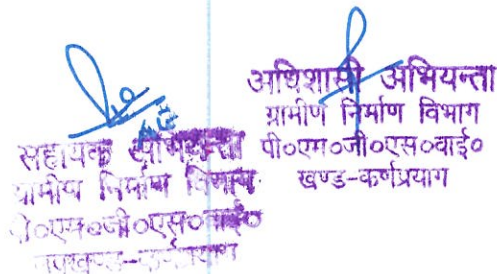 अधिशासी अभियन्ता
ग्रामीण निर्माण विभाग
पी०एम०जी०एस०वाई०
खण्ड-कर्णप्रयाग
सहायक अभियन्ता
ग्रामीण निर्माण विभाग
पी०एम०जी०एस०वाई०
उपखण्ड-कर्णप्रयाग